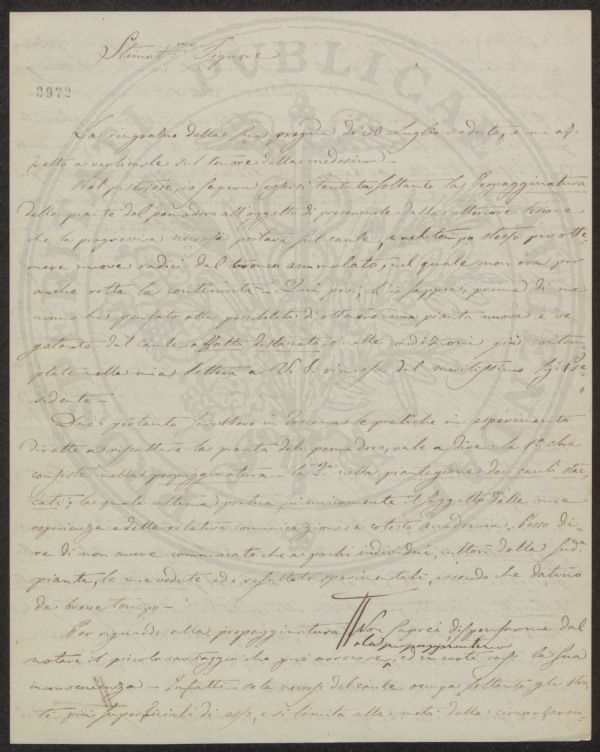 Stimat.mo Signore
2972
La ringrazio della sua pregiata de' 30 Luglio scaduto, e mi af-
fretto a replicarle sul tenore della medesima -
Nel io sapeva essersi tentata soltanto la Propagginatura
delle piante del pomodoro all'oggetto di preservarle dalla ulteriore lesione
che la progressiva necrosi portava sul caule, e nel tempo stesso per otte-
nere nuove radici dal tronco ammalato, sul quale non era per
anche rotta la continuità - Qui poi, ch'io sappia, prima di me
niuno ha pensato alla possibilità di ottenere una pianta nuova e ve-
getante dal caule affatto distaccato, e nelle condizioni già contem-
plate nella mia lettera a V. S. rimessa dal meritissimo Sig. Pre-
sidente -
Due pertanto sarebbero in Toscana le pratiche in esperimento
dirette a riscattare la pianta del pomodoro, vale a dire: la 1a che
consiste nella propagginatura - la 2a nella piantagione dei cauli stac-
cati; la quale ultima pratica fu unicamente il soggetto delle mie
esperienze e della relativa comunicazione a cotesta Accademia. Posso di-
re di non avere comunicato che a pochi individui, cultori della sud.a
pianta, le mie vedute ed i resultati sperimentali, essendo che datino
da breve tempo -
Per riguardo alla propagginatura Non saprei dispensarmi dal
notare il piccolo vantaggio che può arrecare la propagginatura, ed in certi casi la sua
inconvenienza - Infatti se la necrosi del caule occupa soltanto gli stra-
ti più superficiali di esso, e si limita alla metà della circonferen-